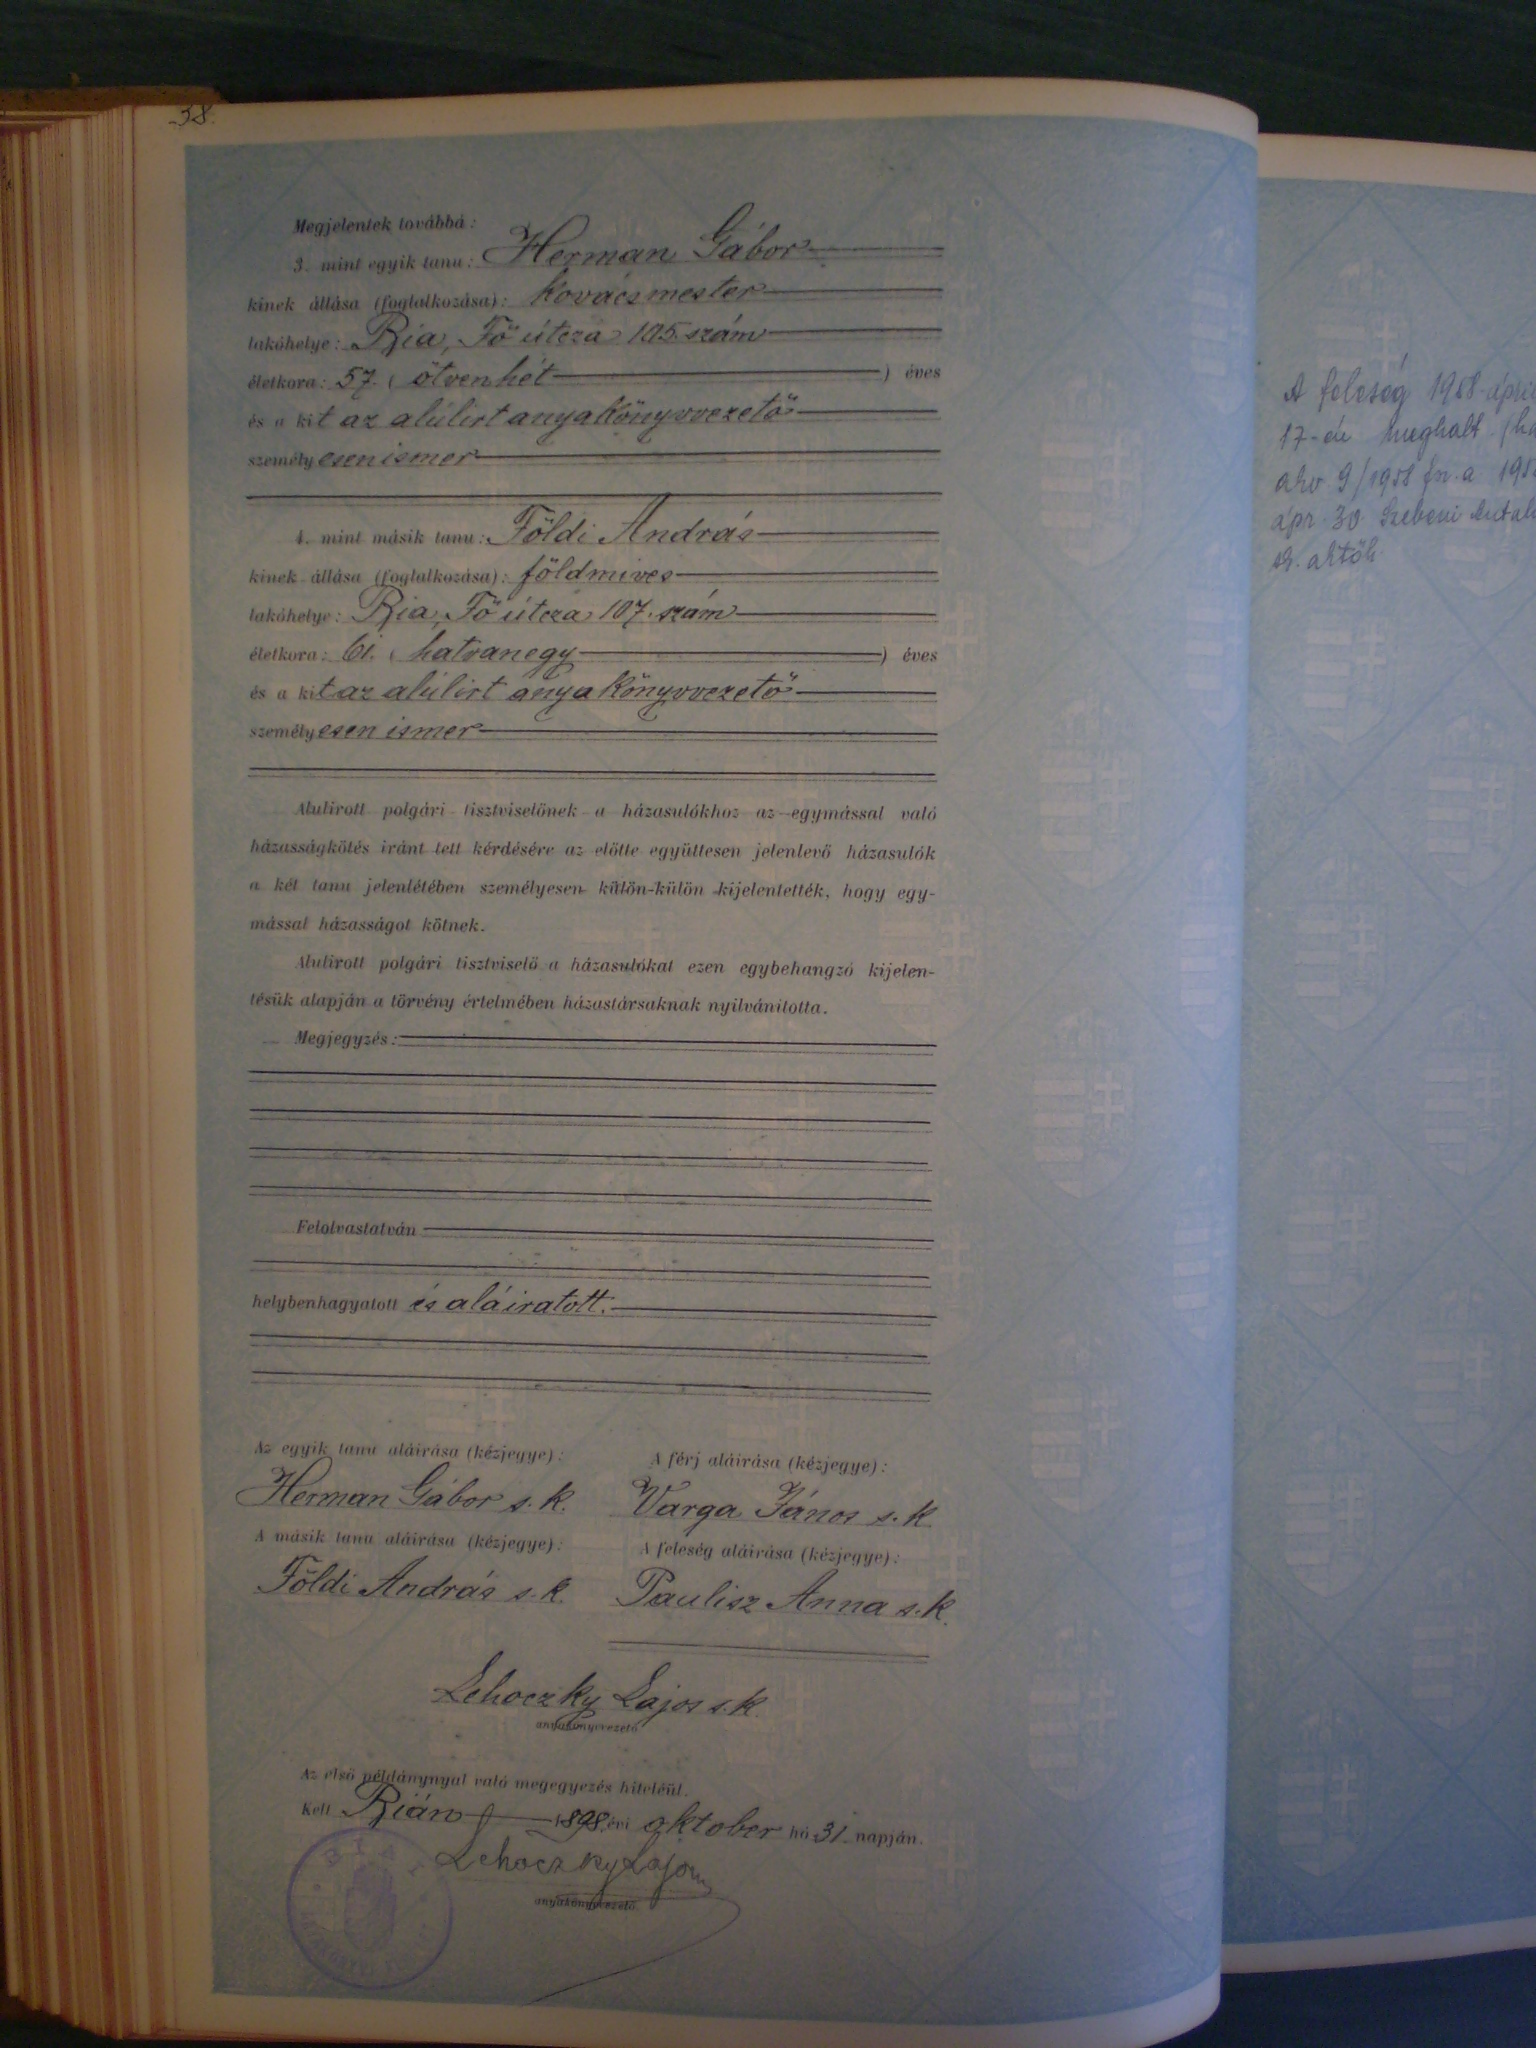 58.
Megjelentek továbbá:
3. mint egyik tanu: Herman Gábor
kinek állása (foglalkozása): kovácsmester
lakóhelye: Bia, Fő útcza 105. szám
életkora: 57. (ötvenhét) éves
és a kit az alúlirt anyakönyvvezető
személyesen ismer
4. mint másik tanu: Földi András
kinek állása (foglalkozása): földmives
lakóhelye: Bia, Fő útcza 107. szám
életkora: 61. (hatvanegy) éves
és a kit az alúlirt anyakönyvvezető
személyesen ismer
Alulirott polgári tisztviselőnek a házasulókhoz az egymással való
házasságkötés iránt tett kérdésére az előtte együttesen jelenlevő házasulók
a két tanu jelenlétében személyesen külön-külön kijelentették, hogy egy-
mással házasságot kötnek.
Alulirott polgári tisztviselő a házasulókat ezen egybehangzó kijelen-
tésük alapján a törvény értelmében házastársaknak nyilvánitotta.
Megjegyzés:
Felolvastatván
helybenhagyatott és aláiratott.
Az egyik tanu aláirása (kézjegye):
Herman Gábor s. k.
A másik tanu aláirása (kézjegye):
Földi András s. k.
A férj aláirása (kézjegye):
Varga János s. k.
A feleség aláirása (kézjegye):
Paulisz Anna s. k.
Lehoczky Lajos s. k.
anyakönyvvezető
Az első példánynyal való megegyezés hiteléül.
Kelt Bián 1898. évi oktober hó 31. napján.
Lehoczky Lajos
anyakönyvvezető.
A feleség 1958
17-én meghalt
9/1958 a
ápr. 30. Szebeni